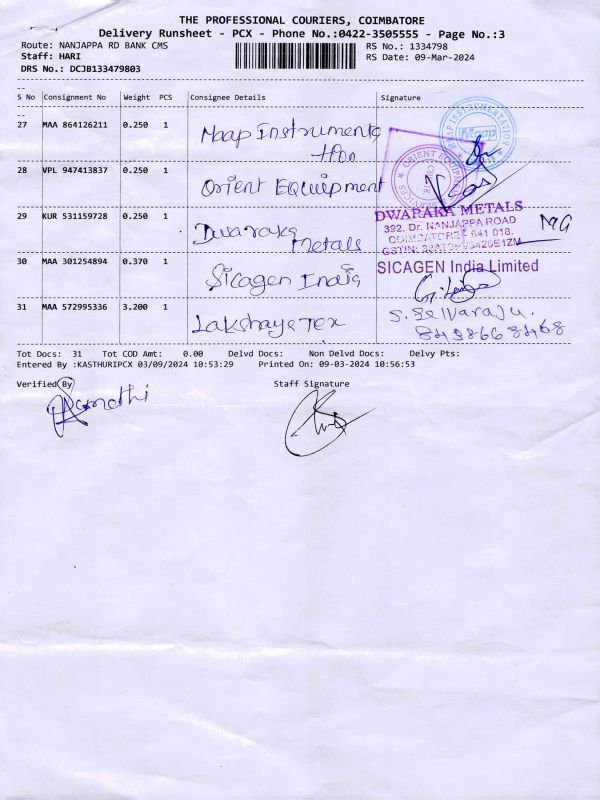 THE PROFESSIONAL COURIERS, COIMBATORE
Delivery Runsheet - PCX - Phone No.:0422-3505555 - Page No.:3
Route: NANJAPPA RD BANK CMS
RS No.: 1334798
Staff: HARI
RS Date: 09-Mar-2024
DRS No.: DCJB133479803
S No Consignment No Weight PCS Consignee Details Signature
27 MAA 864126211 0.250 1 Maap Instrumenta
tion
MAAP INSTRUMENTATION
Maap
28 VPL 947413837 0.250 1 Orient Equipment
ORIENT EQUIPMENT
29 KUR 531159728 0.250 1 Dwaraka
Metals
DWARAKA METALS
392, Dr. NANJAPPA ROAD
COIMBATORE - 641 018.
30 MAA 301254894 0.370 1 Sicagen India
SICAGEN India Limited
31 MAA 572995336 3.200 1 Lakshaya Tex
S. Selvaraju.
Tot Docs: 31 Tot COD Amt: 0.00 Delvd Docs: Non Delvd Docs: Delvy Pts:
Entered By :KASTHURIPCX 03/09/2024 10:53:29 Printed On: 09-03-2024 10:56:53
Verified By
Staff Signature